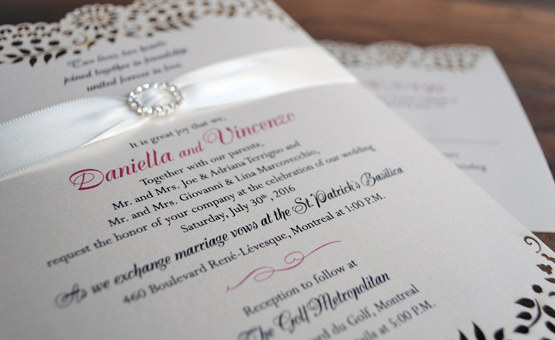 Two lives, two hearts
joined together in friendship
united forever in love.
It is great joy that we,
Daniella and Vincenzo
Together with our parents,
Mr. and Mrs. Joe & Adriana Terrigno and
Mr. and Mrs. Giovanni & Lina Marcovecchio,
request the honor of your company at the celebration of our wedding
Saturday, July 30th, 2016
As we exchange marriage vows at the St. Patrick's Basilica
460 Boulevard René-Lévesque, Montreal at 1:00 P.M.
Reception to follow at
The Golf Metropolitan
du Golf, Montreal
at 5:00 P.M.